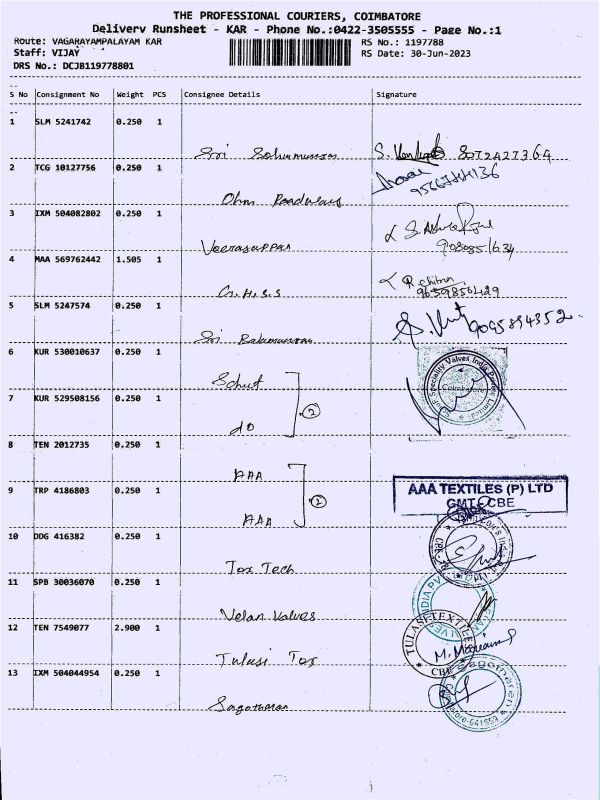 THE PROFESSIONAL COURIERS, COIMBATORE
Delivery Runsheet - KAR - Phone No.:0422-3505555 - Page No.:1
Route: VAGARAYAMPALAYAM KAR
RS No.: 1197788
Staff: VIJAY
RS Date: 30-Jun-2023
DRS No.: DCJB119778801
S No Consignment No Weight PCS Consignee Details Signature
1 SLM 5241742 0.250 1
Sri
S.
2 TCG 10127756 0.250 1
Ohm Roadways
3 IXM 504082802 0.250 1
Veerasuppan
4 MAA 569762442 1.505 1
G.H.S.S
R Chitra
9659856429
5 SLM 5247574 0.250 1
Sri
9095894352
6 KUR 530010637 0.250 1
Schuf
Speciality Valves India Private Limited
Coimbatore
7 KUR 529508156 0.250 1
do
2
8 TEN 2012735 0.250 1
AAA
AAA TEXTILES (P) LTD
GMT CBE
9 TRP 4186803 0.250 1
AAA
2
10 DDG 416382 0.250 1
Tex Tech
11 SPB 30036070 0.250 1
Velan Valves
12 TEN 7549077 2.900 1
Tulasi Tex
TULASI TEXTILE
CBE
13 IXM 504044954 0.250 1
Sagotharan